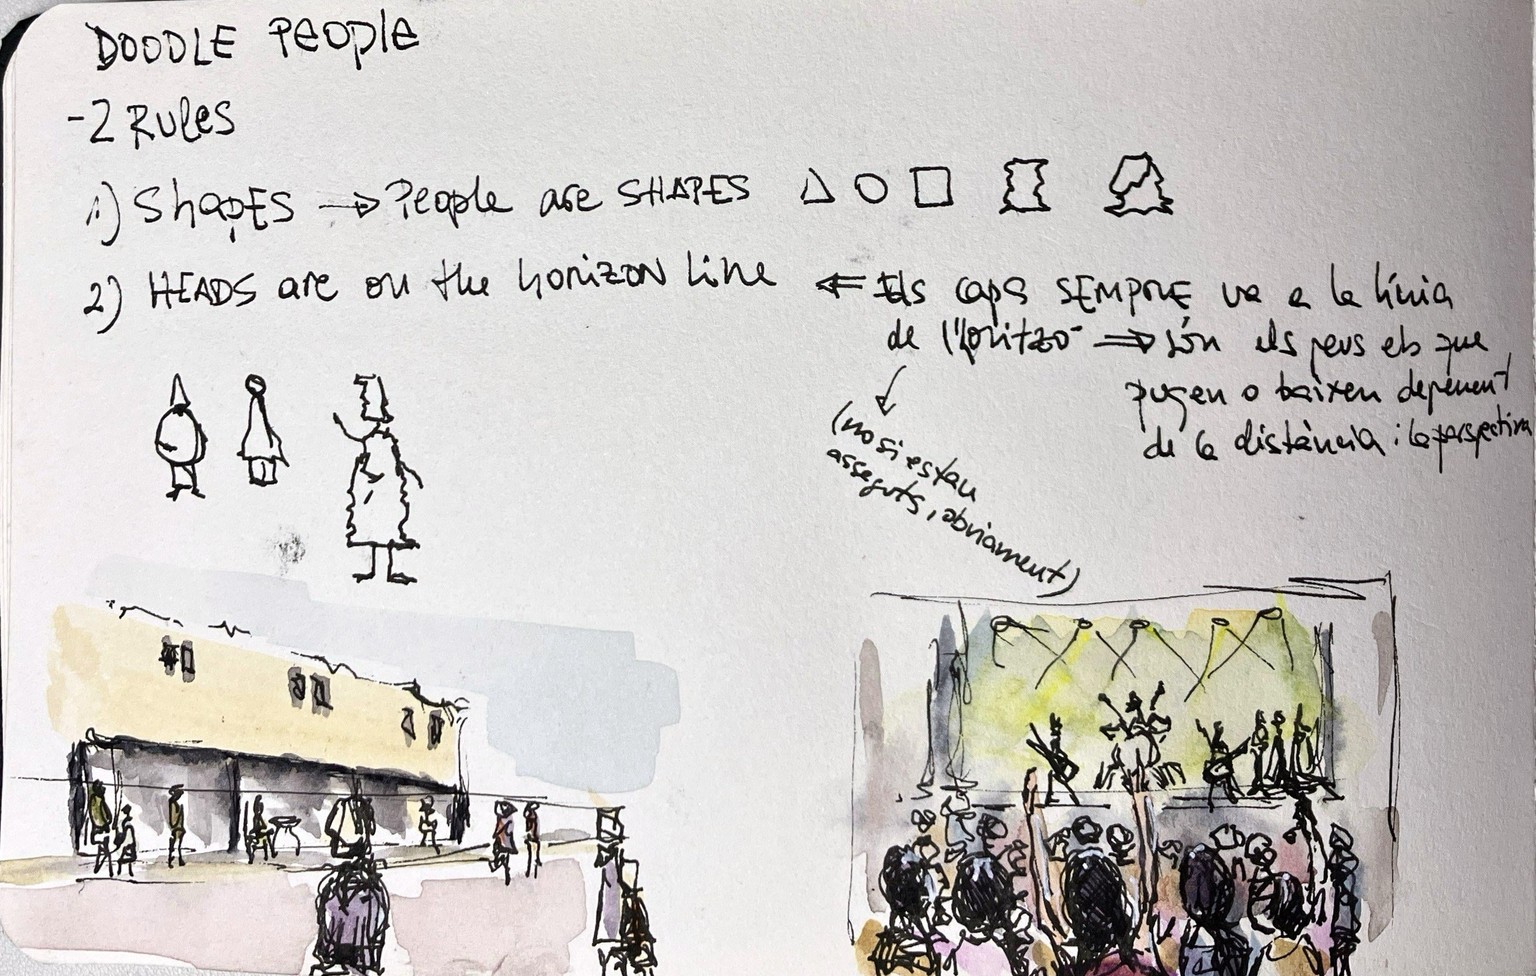 DOODLE People
-2 RULES
1) SHAPES → People are SHAPES
2) HEADS are on the horizon line ⇐ Els caps SEMPRE va a la línia
de l'horitzó ⇒ són els peus els que
pugen o baixen depenent
de la distància i la perspectiva
(no si estan
asseguts, obviament)